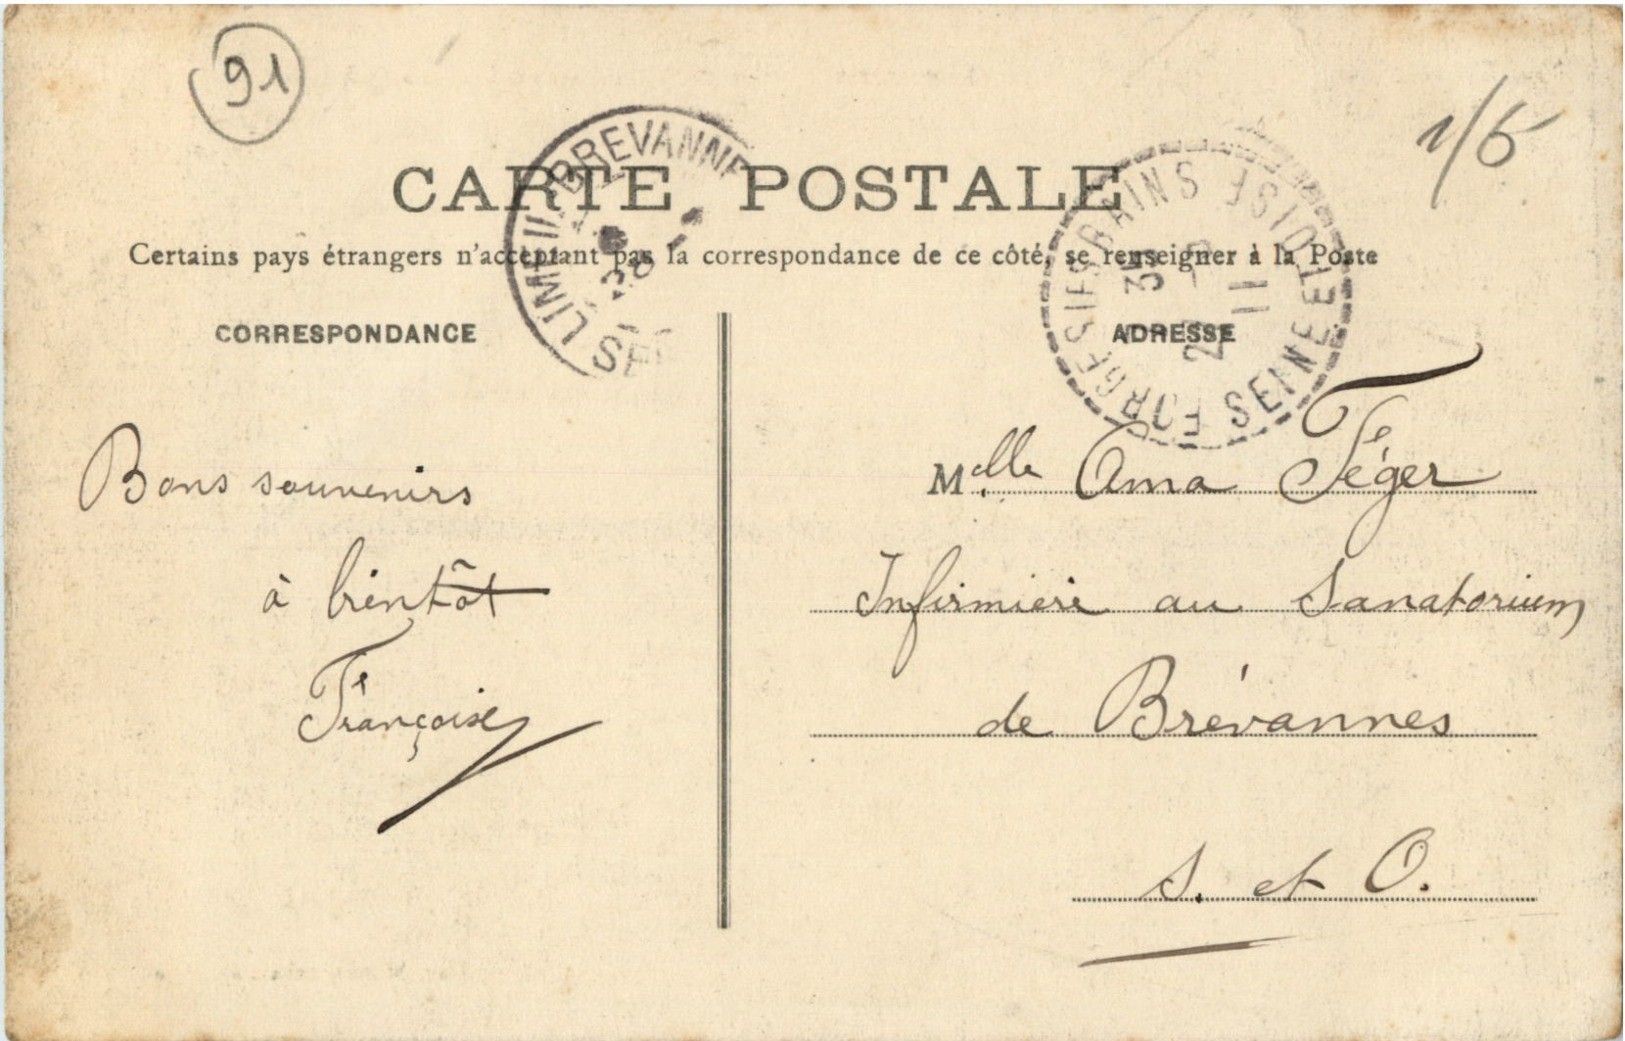 91
1/5
CARTE POSTALE
Certains pays étrangers n'acceptant pas la correspondance de ce côté, se renseigner à la Poste
CORRESPONDANCE
ADRESSE
LIMEIL-BREVANNE
FORGES LES BAINS
SEINE ET OISE
11
Bons souvenirs
à bientôt
Françoise
Melle Ama Féger
Infirmière au Sanatorium
de Brévannes
S. et O.